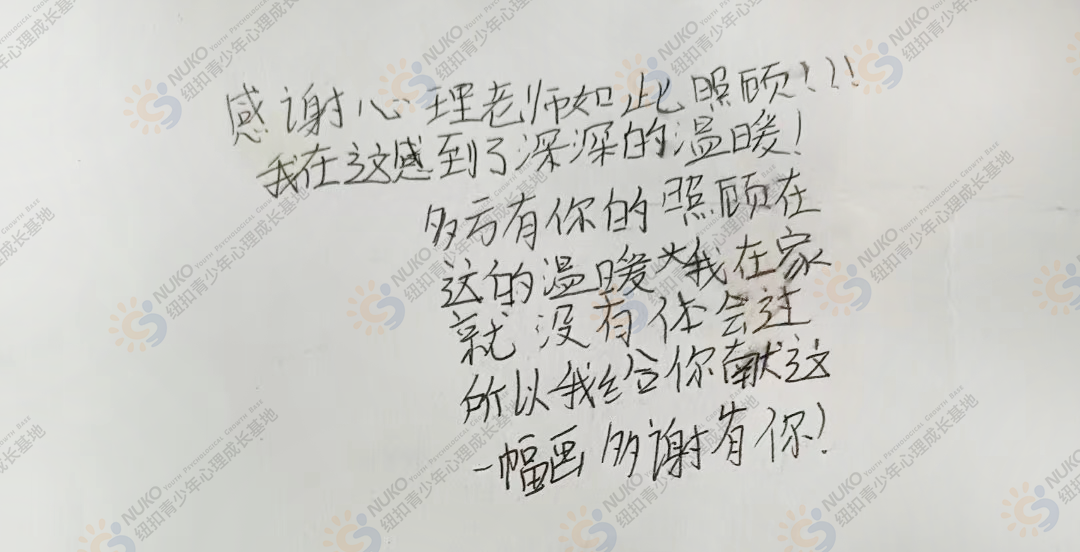 感谢心理老师如此照顾!!!
我在这感到了深深的温暖!
多亏有你的照顾在
这的温暖我在家
就没有体会过
所以我给你献这
一幅画多谢有你!
NUKO YOUTH PSYCHOLOGICAL GROWTH BASE
纽扣青少年心理成长基地